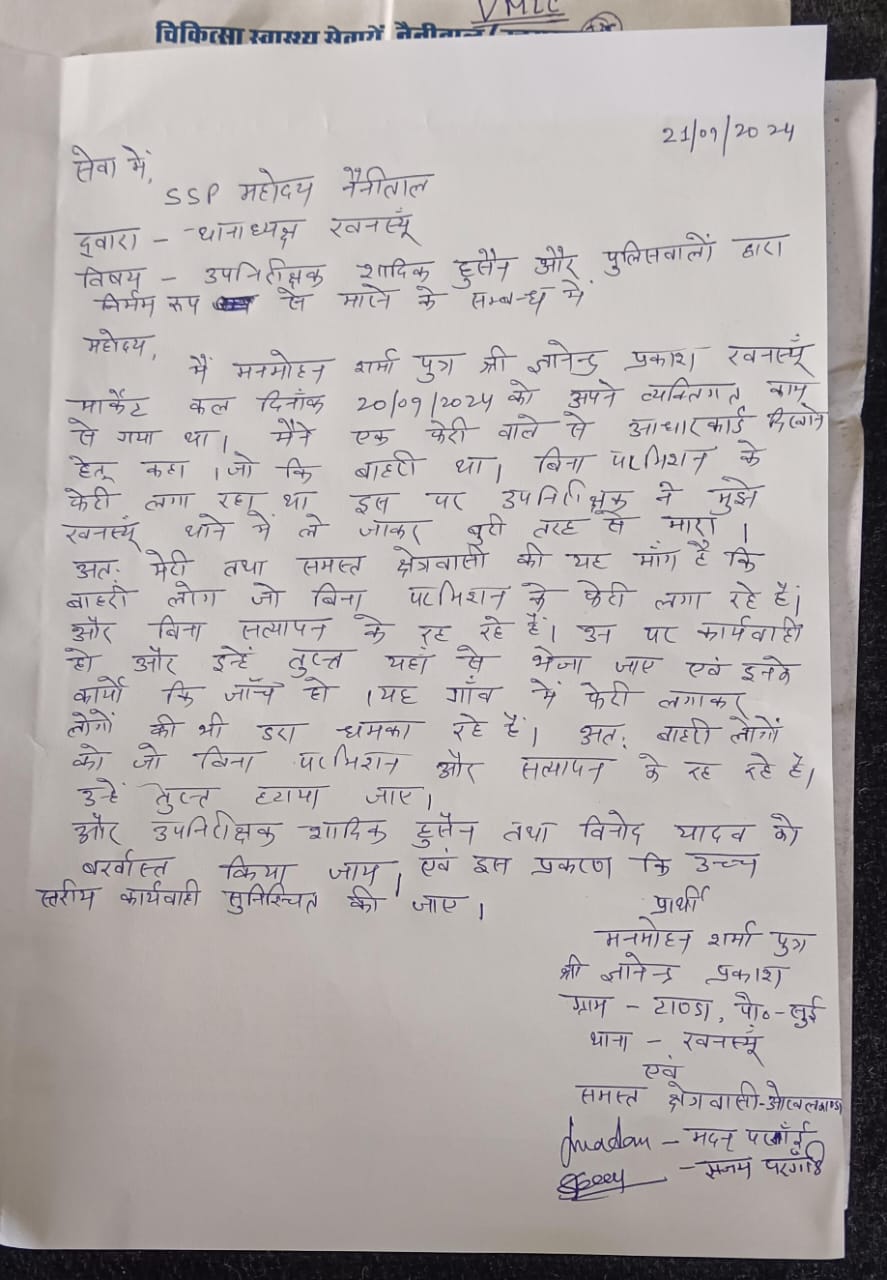 VMLC
चिकित्सा स्वास्थ्य सेवायें नैनीताल
21/09/2024
सेवा में,
SSP महोदय नैनीताल
दुवारा - थानाध्यक्ष खनस्यूँ
विषय - उपनिरीक्षक शादिक हुसैन और पुलिसवालों द्वारा
निर्मम रूप से मारने के सम्बन्ध में
महोदय,
मैं मनमोहन शर्मा पुत्र श्री ज्ञानेन्द्र प्रकाश खनस्यूँ
मार्केट कल दिनाँक 20/09/2024 को अपने व्यक्तिगत काम
से गया था। मैंने एक फेरी वाले से आधारकार्ड दिखाने
हेतू कहा। जो कि बाहरी था। बिना परमिशन के
फेरी लगा रहा था इस पर उपनिरीक्षक ने मुझे
खनस्यूँ थाने में ले जाकर बुरी तरह से मारा।
अतः मेरी तथा समस्त क्षेत्रवासी की यह माँग है कि
बाहरी लोग जो बिना परमिशन के फेरी लगा रहे हैं।
और बिना सत्यापन के रह रहे हैं। उन पर कार्यवाही
हो और इन्हें तुरन्त यहाँ से भेजा जाए एवं इनके
कार्यो कि जाँच हो। यह गाँव में फेरी लगाकर
लोगों की भी डरा धमका रहे हैं। अतः बाहरी लोगों
को जो बिना परमिशन और सत्यापन के रह रहे हैं।
उन्हें तुरन्त हटाया जाए।
और उपनिरीक्षक शादिक हुसैन तथा विनोद यादव को
बर्खास्त किया जाय, एवं इस प्रकरण कि उच्च
स्तरीय कार्यवाही सुनिश्चित की जाए।
प्रार्थी
मनमोहन शर्मा पुत्र
श्री ज्ञानेन्द्र प्रकाश
ग्राम - टाण्डा, पो०-लुई
थाना - खनस्यूँ
एवं
समस्त क्षेत्रवासी-ओखलकाण्डा
Madan - मदन परगाँई
- संजय परगांई